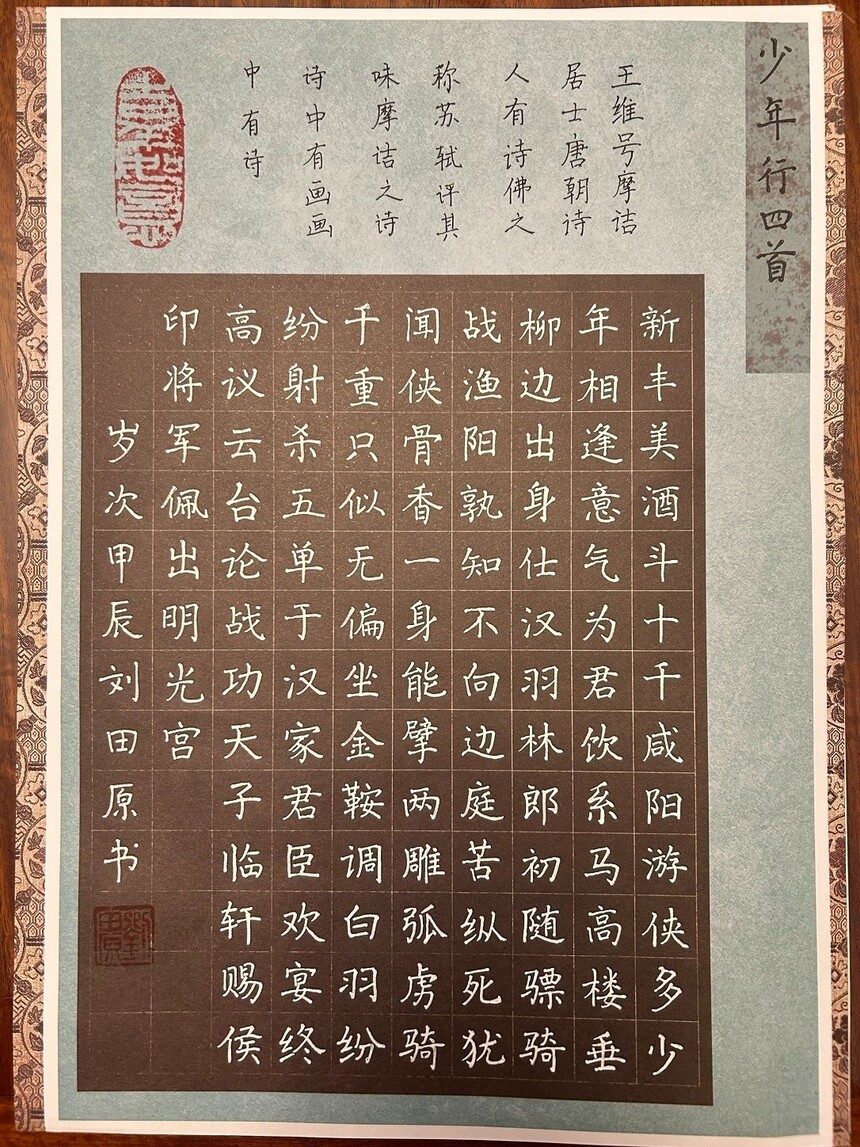 少年行四首
王维号摩诘
居士唐朝诗
人有诗佛之
称苏轼评其
味摩诘之诗
诗中有画画
中有诗
新丰美酒斗十千咸阳游侠多少
年相逢意气为君饮系马高楼垂
柳边出身仕汉羽林郎初随骠骑
战渔阳孰知不向边庭苦纵死犹
闻侠骨香一身能擘两雕弧虏骑
千重只似无偏坐金鞍调白羽纷
纷射杀五单于汉家君臣欢宴终
高议云台论战功天子临轩赐侯
印将军佩出明光宫
岁次甲辰刘田原书